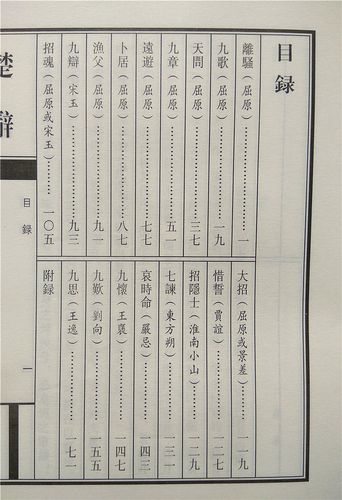 目录
離騷（屈原）………………一
九歌（屈原）………………一九
天問（屈原）………………三七
九章（屈原）………………五一
遠遊（屈原）………………七七
卜居（屈原）………………八七
漁父（屈原）………………九一
九辯（宋玉）………………九三
招魂（屈原或宋玉）………一〇五
大招（屈原或景差）………一一九
惜誓（賈誼）………………一二七
招隱士（淮南小山）………一二九
七諫（東方朔）……………一三一
哀時命（嚴忌）……………一四三
九懷（王褒）………………一四七
九歎（劉向）………………一五五
九思（王逸）………………一七一
附録
楚辭
目録
一